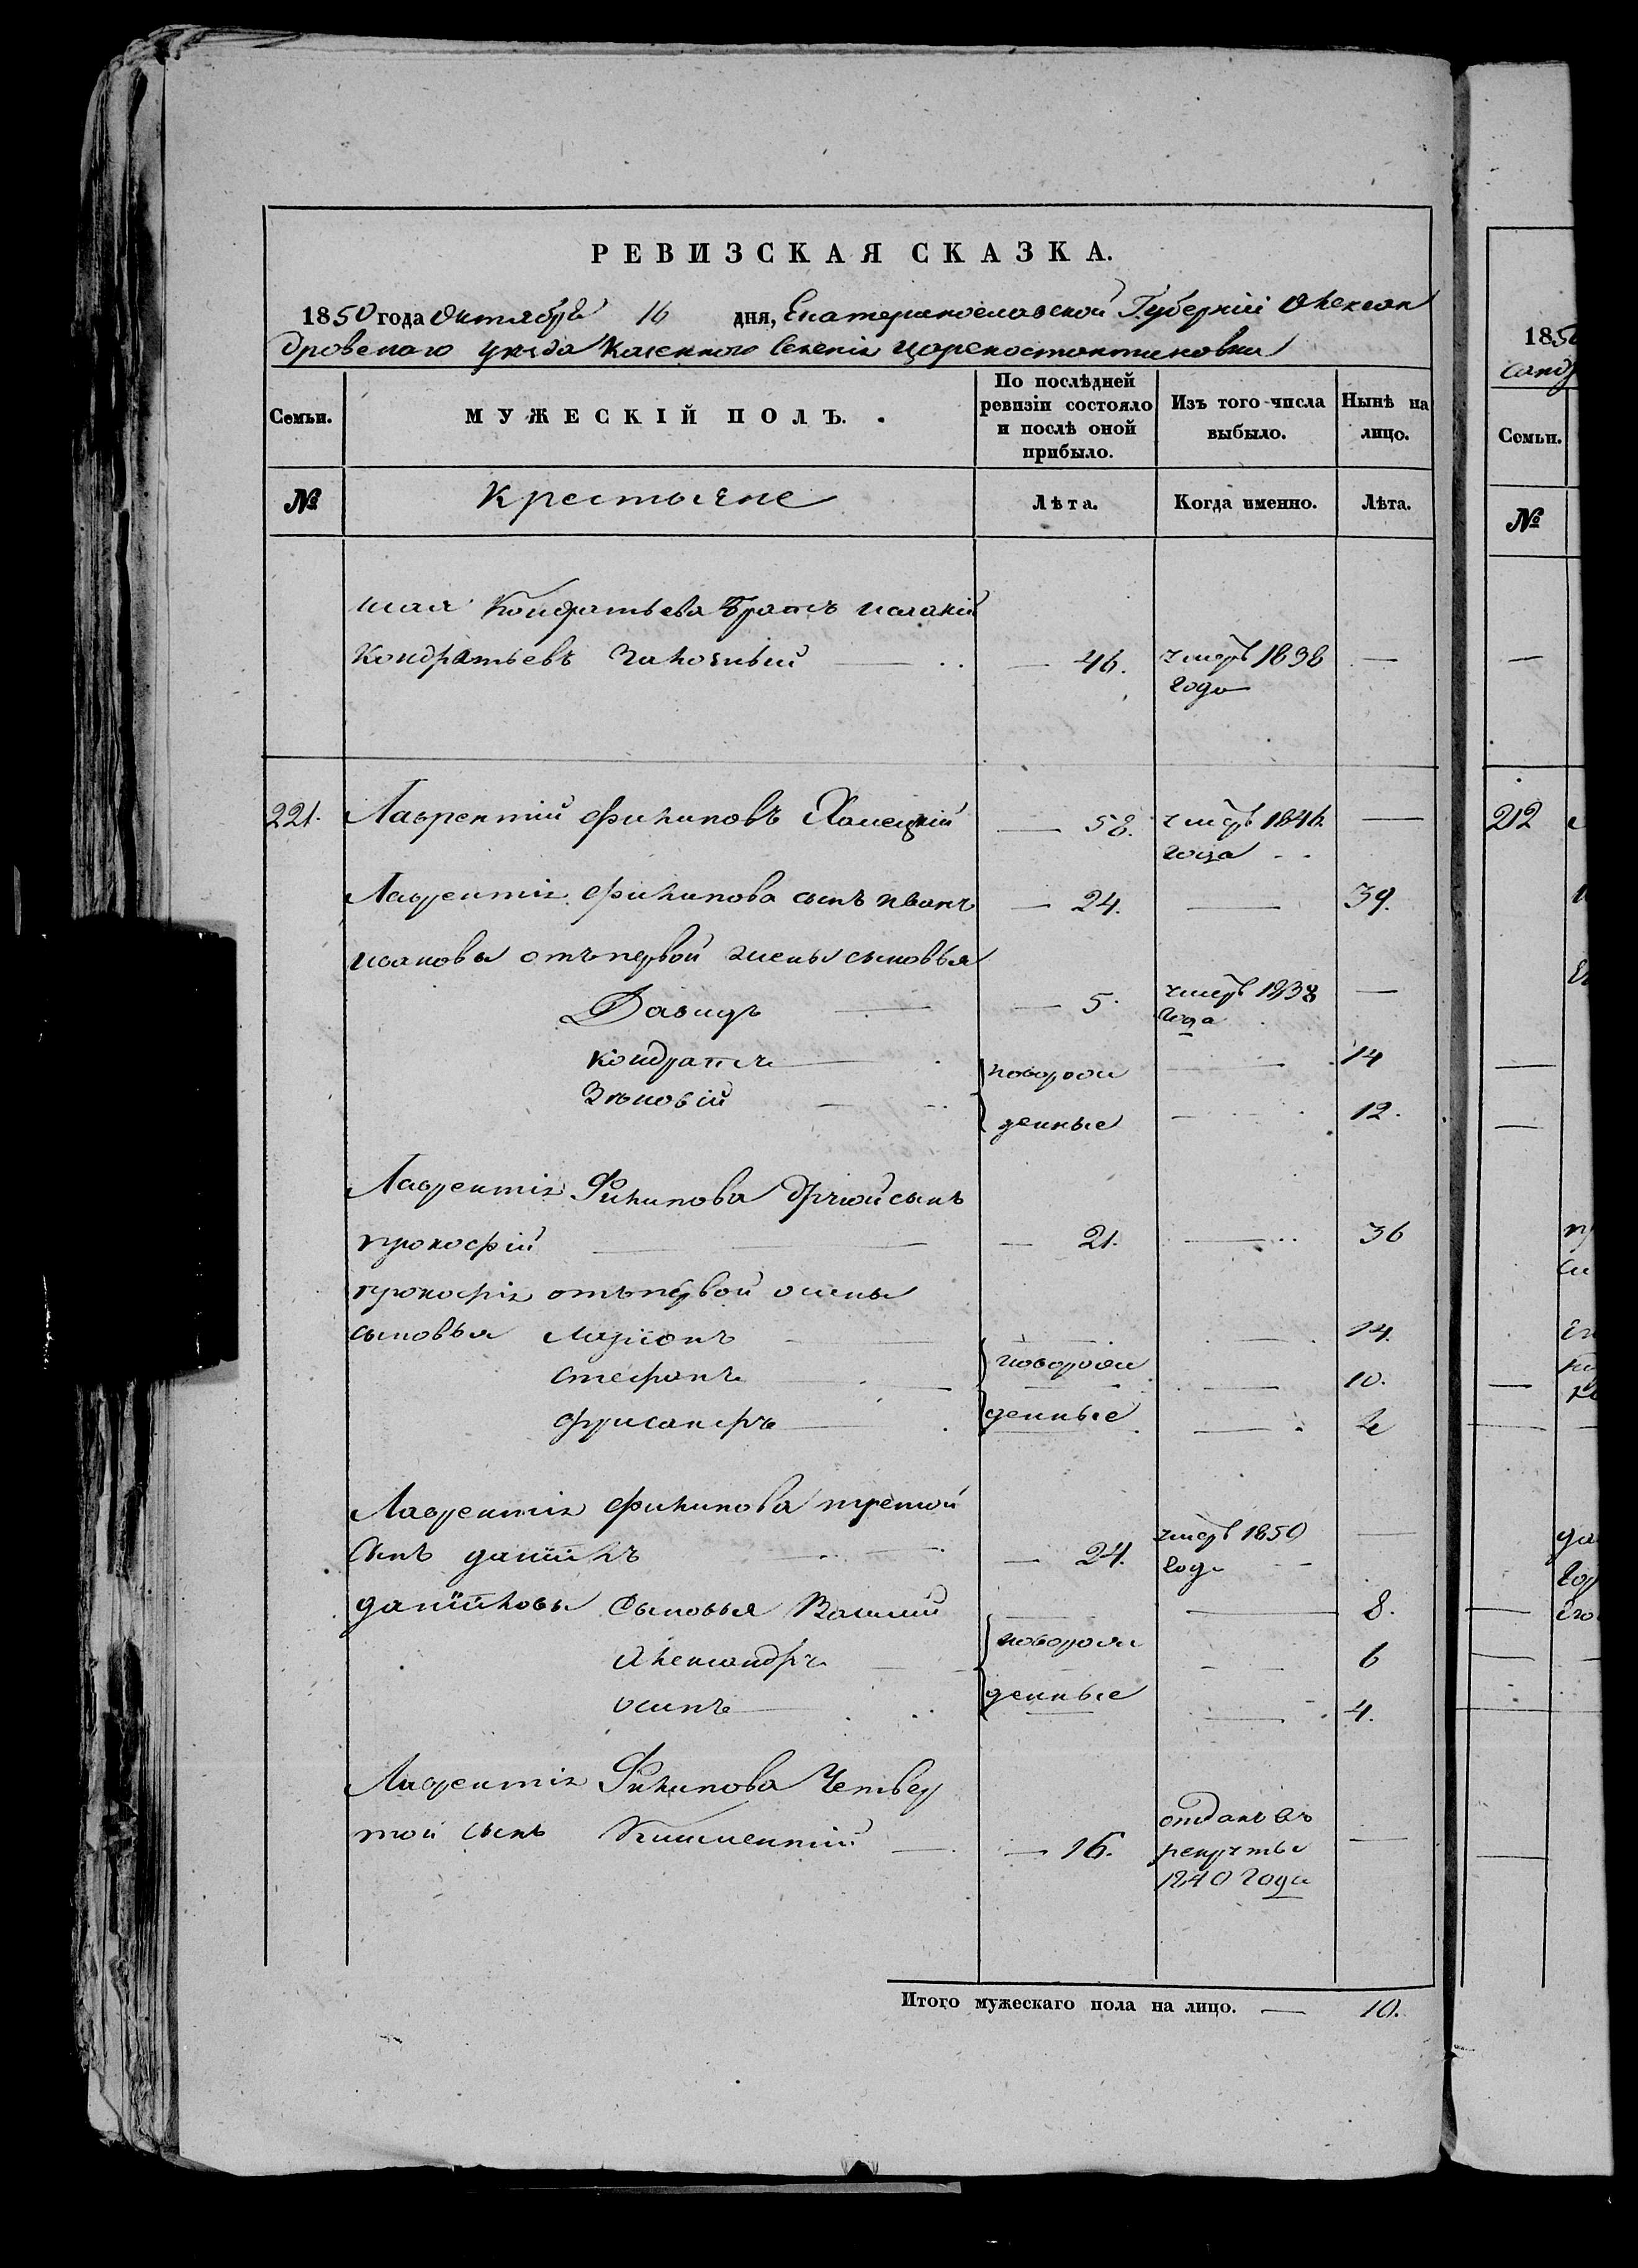 РЕВИЗСКАЯ СКАЗКА.
1850 года Октября 16 дня, Екатеринославской Губерніи Алексан
дровскаго уѣзда Казенного Селенія Цареконстантиновки
Семьи.
МУЖЕСКІЙ ПОЛЪ.
По послѣдней ревизіи состояло и послѣ оной прибыло.
Изъ того числа выбыло.
Нынѣ на лицо.
№
Крестьяне
Лѣта.
Когда именно.
Лѣта.
Кондратьева Братъ
Кондратьевъ — 46. умеръ 1838 —
года
221. Лаврентій Филиповъ — 58. умеръ 1846 —
года
Лаврентія Филипова сынъ Иванъ — 24. — 39.
Ивановы отъ первой жены сыновья
Давидъ — 5. умеръ 1838 —
года
Кондратъ — новорож — 14
Зѣновій — денные — 12.
Лаврентія Филипова другой сынъ
Прокофій — 21. — 36
Прокофія отъ первой жены
сыновья Ларіонъ — 14.
Стефанъ — новорож — 10.
Хрисанфъ — денные — 2
Лаврентія Филипова третой
сынъ Даніилъ — 24. умеръ 1850 —
года
Даніиловы сыновья Василий — 8.
Александръ — новорож — 6
Осипъ — денные — 4.
Лаврентія Филипова Четвер
той сынъ Климентій — 16. отданъ въ
рекруты —
1840 года
Итого мужескаго пола на лицо. — 10.
185
Семьи.
№
212